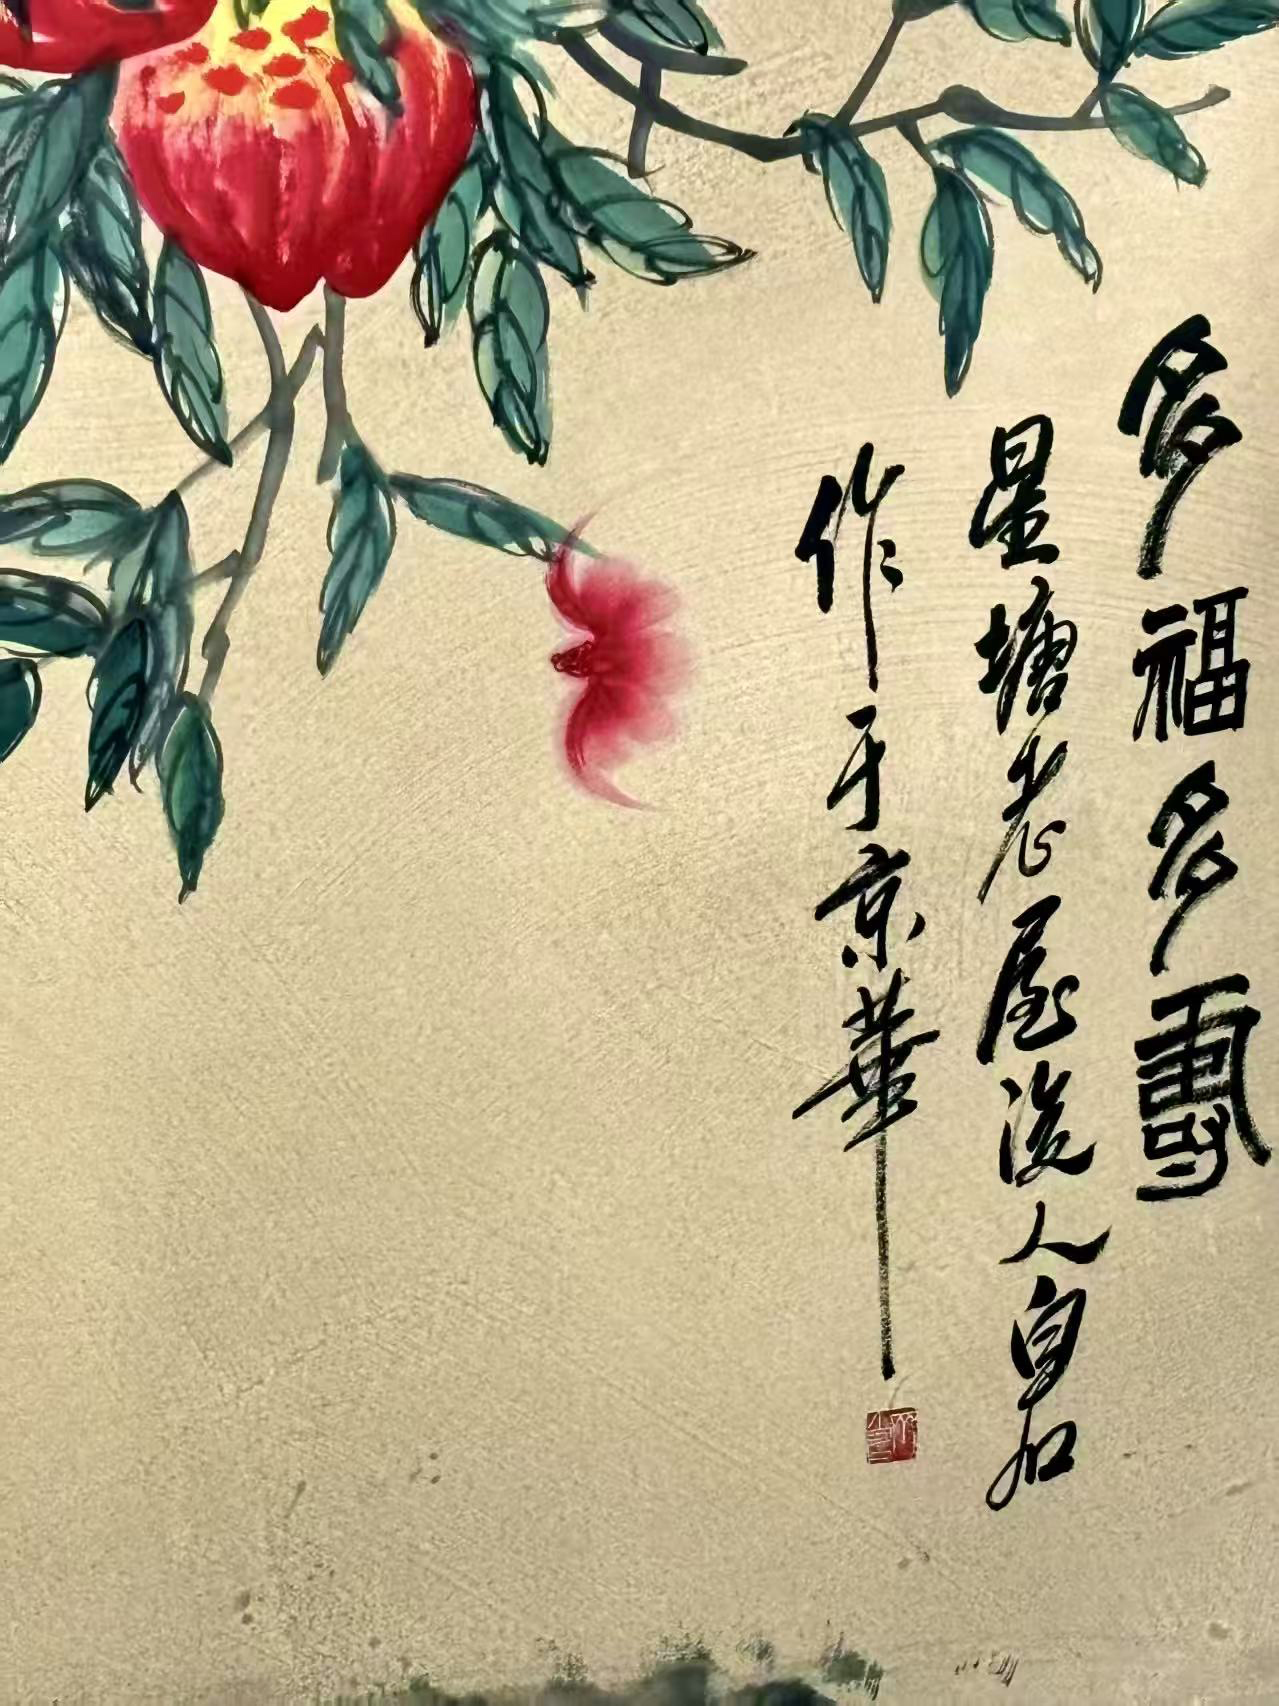 多福多壽
星塘老屋後人白石
作于京華